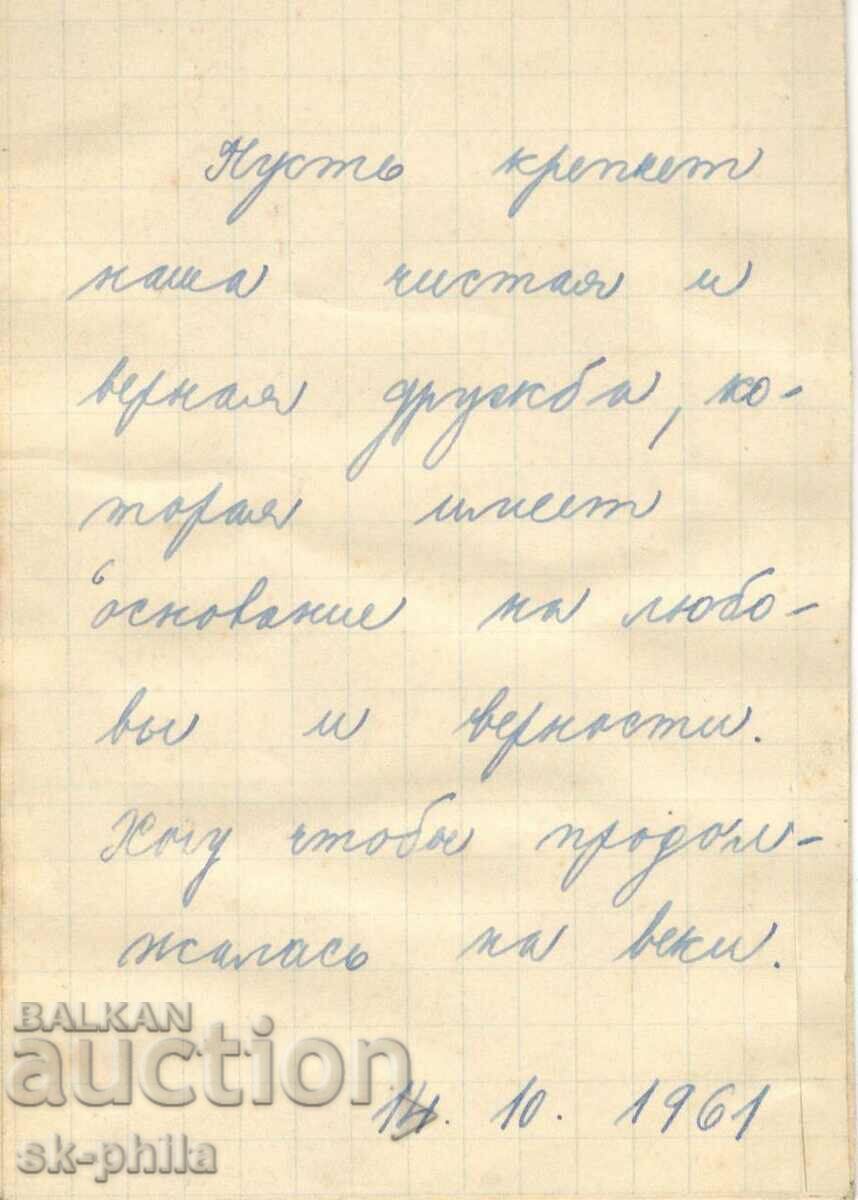 Пусть крепнет
наша чистая и
верная дружба, ко-
торая имеет
основание на любо-
вы и верности.
Хочу чтобы продол-
жалась на веки.
14. 10. 1961
BALKAN
auction
sk-phila